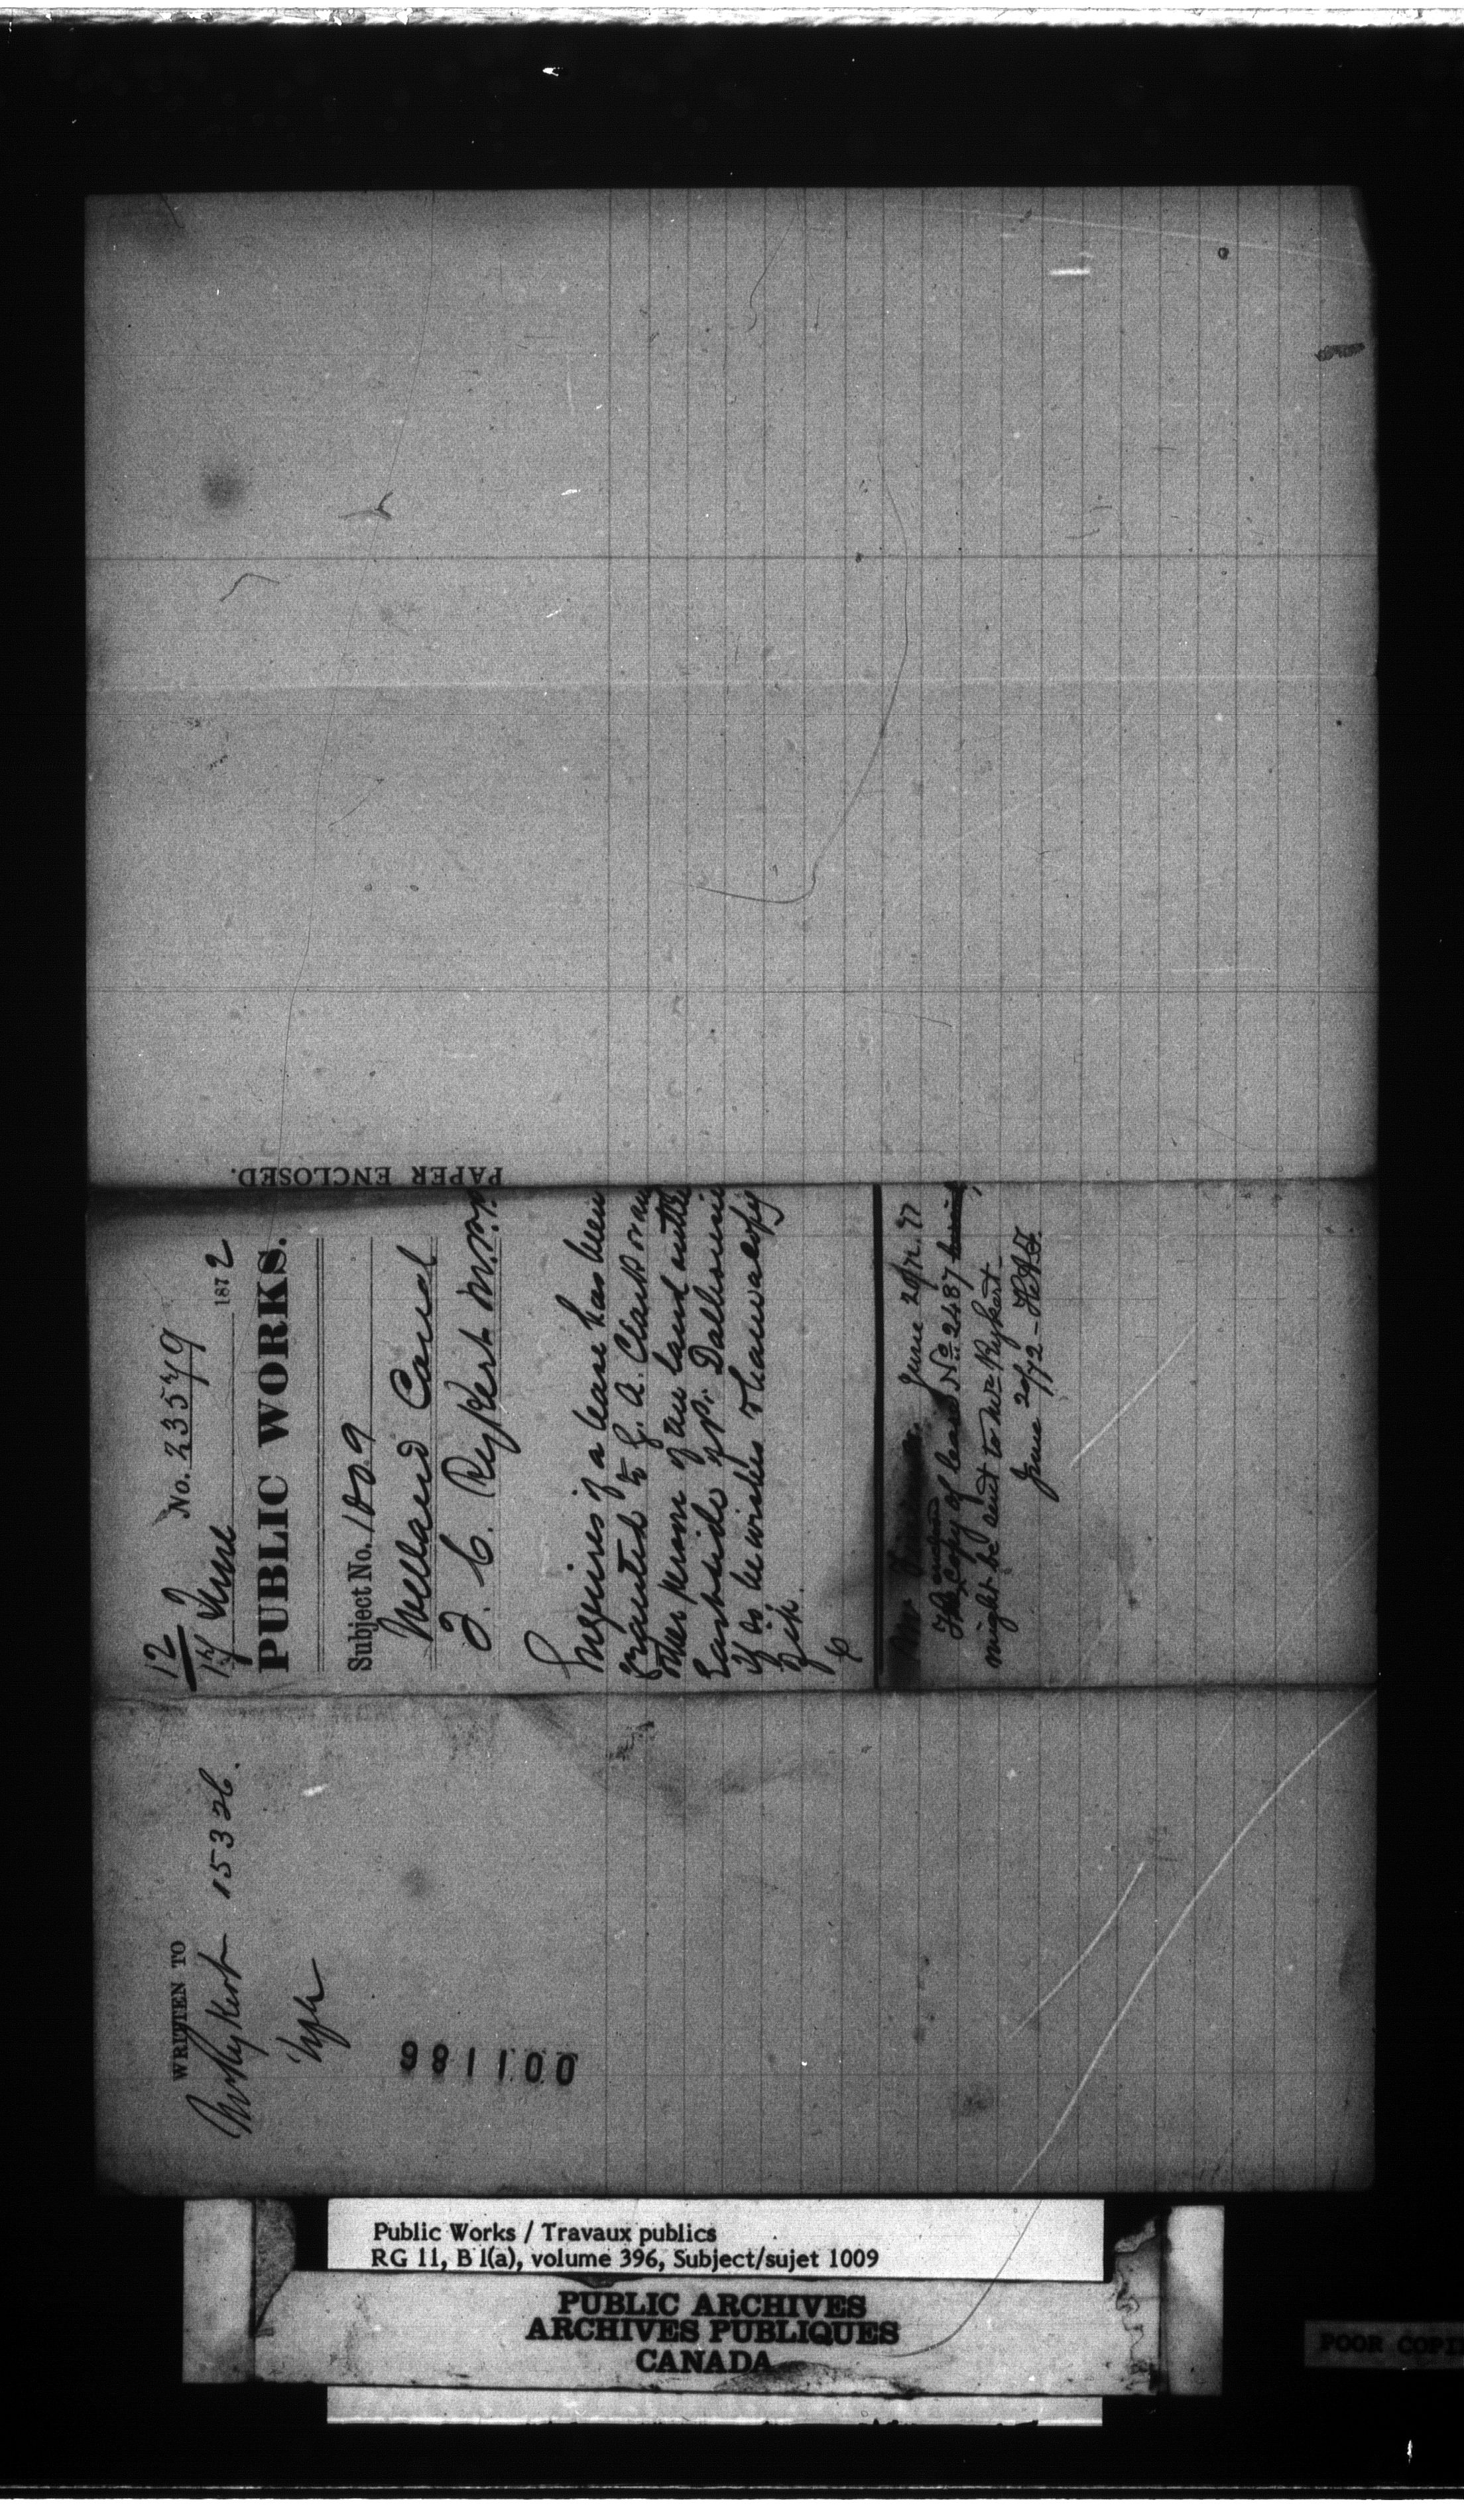 PAPER ENCLOSED.
12
No. 23579
17 June 1872
PUBLIC WORKS.
Subject No. 1009
Welland Canal
J. C. Rykert M.P.P.
Inquires if a lease has been
granted to G. A. Clark or any
other person of the land on the
East side of Pt. Dalhousie
if so he wishes to have a copy
of it.
June 20/72
The copy of lease No. 2487
might be sent to Mr Rykert
June 20/72 -
WRITTEN TO
Mr Rykert 15326.
981100
Public Works / Travaux publics
RG 11, B 1(a), volume 396, Subject/sujet 1009
PUBLIC ARCHIVES
ARCHIVES PUBLIQUES
CANADA
POOR COPI